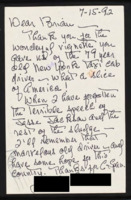 7-15-92
Dear Brian
Thank you for the
wonderful vignette you
gave us of the 79 year
old New York taxi cab
driver — What a slice
of America!
When I have forgotten
the terrible speech of
Jesse Jackson and the
rest of the sludge
I'll remember that
marvelous old driver — and
have some hope for this
country. Thanks for C-Span